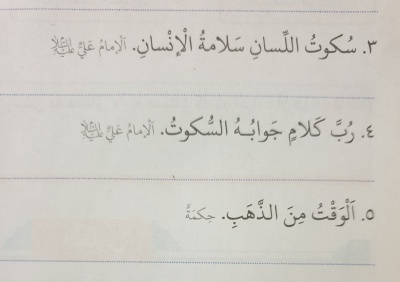 ٣. سُكوتُ اللِّسانِ سَلامةُ الْإنْسانِ. اَلْإمامُ عَليٌّ عليه السلام
٤. رُبَّ كَلامٍ جَوابُهُ السُّكوتُ. اَلْإمامُ عَليٌّ عليه السلام
٥. اَلْوَقْتُ مِنَ الذَّهَبِ. حِكمَةٌ